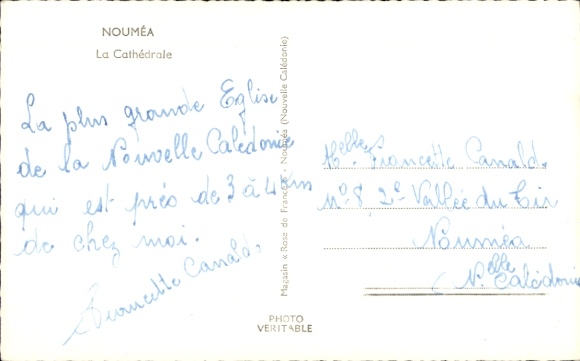 NOUMÉA
La Cathédrale
La plus grande Eglise
de la Nouvelle Calédonie
qui est près de 3 à 4 km
de chez moi.
Francette Canald.
Magasin « Rose de France » - Nouméa (Nouvelle Calédonie)
Melle Francette Canald.
N° 8 2e Vallée du Tir
Nouméa
Nelle Calédonie
PHOTO
VERITABLE